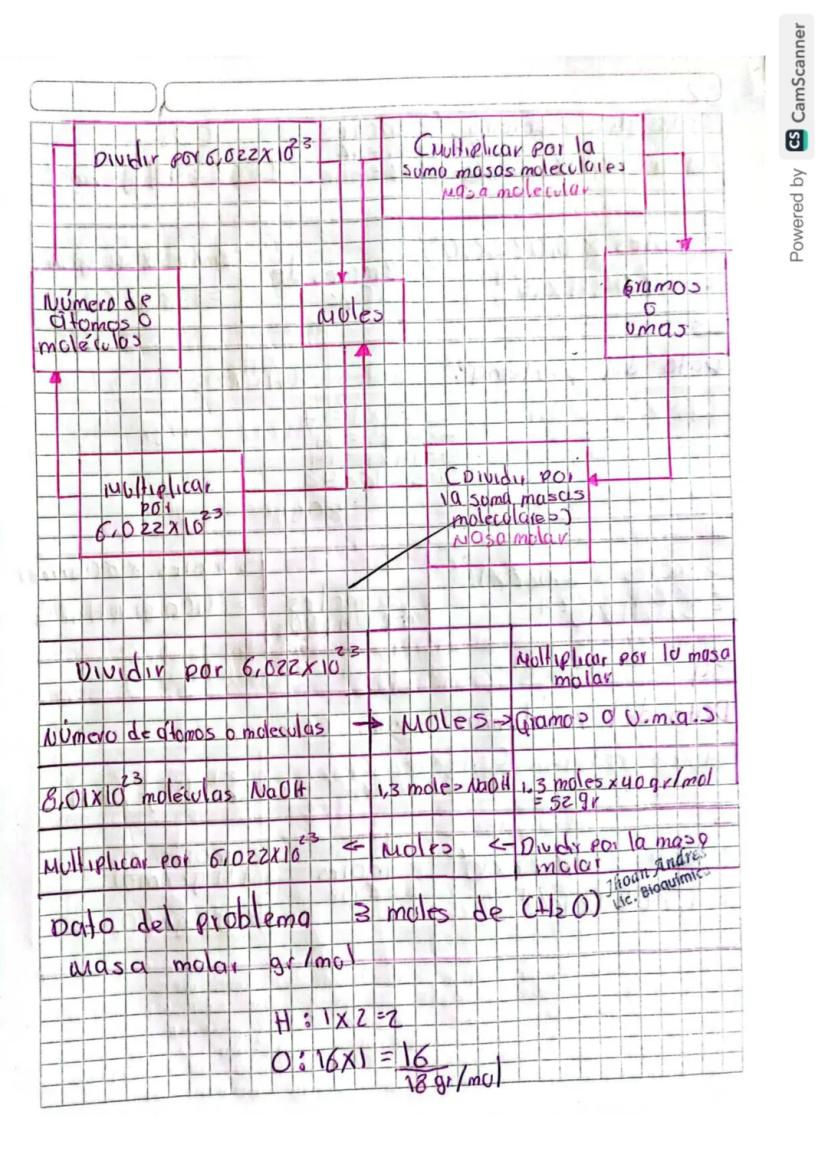 Dividir por 6,022x10²³
(multiplicar por la
suma masas moleculares
Masa molecular
Número de
átomos o
moléculas
Moles
Gramos
o
umas
Multiplicar
por
6,022x10²³
(Dividir por
la suma masas
moleculares)
Masa molar
Dividir por 6,022x10²³
Multiplicar por la masa
molar
Número de átomos o moleculas → Moles → Gramos o U.m.a.s
8,01x10²³ moléculas NaOH
1,3 moles NaOH
1,3 moles x 40 gr/mol
= 52 gr
Multiplicar por 6,022x10²³ ← Moles ← Dividir por la masa
molar
Jhoan Andres
Lic. Bioquímic
Dato del problema 3 moles de (H₂O)
Masa molar gr/mol
H : 1x2 =2
O : 16x1 = 16
18 gr/mol
Powered by CS CamScanner